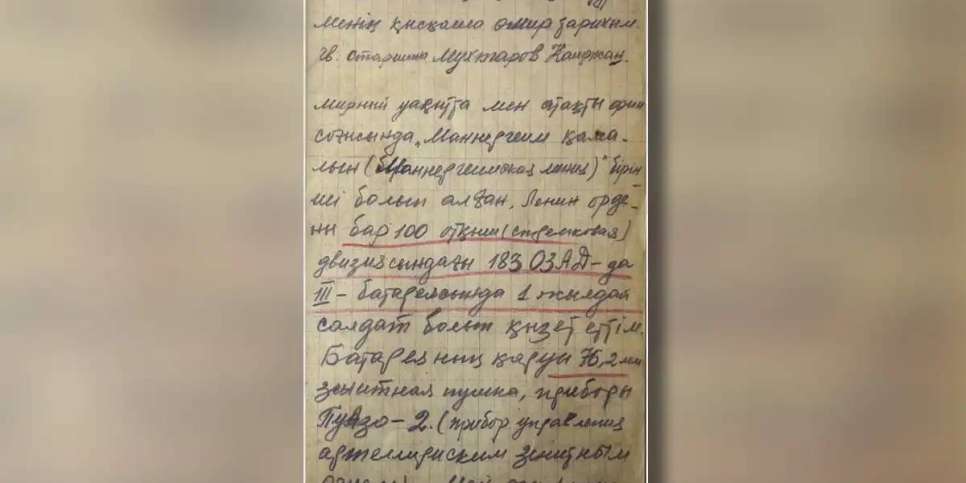 менің қысқаша өмир тарихым.
гв. старшина Мухтаров Каиржан.
мирний уақытта мен атақты фин
соғысында, „Маннергейм қама-
лын (Маннергеимская линия)" бірін
ші болып алған, Ленин орде-
ны бар 100 атқыш (стрелковая)
двизиясындағы 183 ОЗАД-да
III - батареясында 1 жылдай
салдат болып қызет еттім.
Батареяның қаруы 76,2 мм
зенитная пушка, приборы
Пуазо-2. (прибор управления
артеллириским зенитным